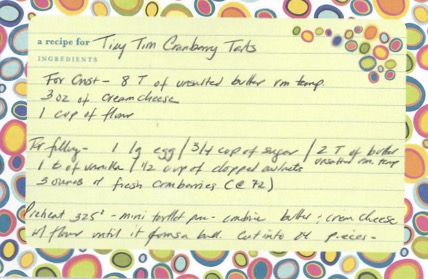 a recipe for Tiny Tim Cranberry Tarts
INGREDIENTS
For Crust - 8 T of unsalted butter rm temp.
3 oz of cream cheese
1 cup of flour
For filling - 1 lg egg / 3/4 cup of sugar / 2 T of butter
unsalted rm. temp
1 t of vanilla / 1/2 cup of chopped walnuts
3 ounces of fresh cranberries (@ 72)
Preheat 325° - mini tartlet pan - combine butter + cream cheese
w/ flour until it forms a ball. Cut into 24 pieces -